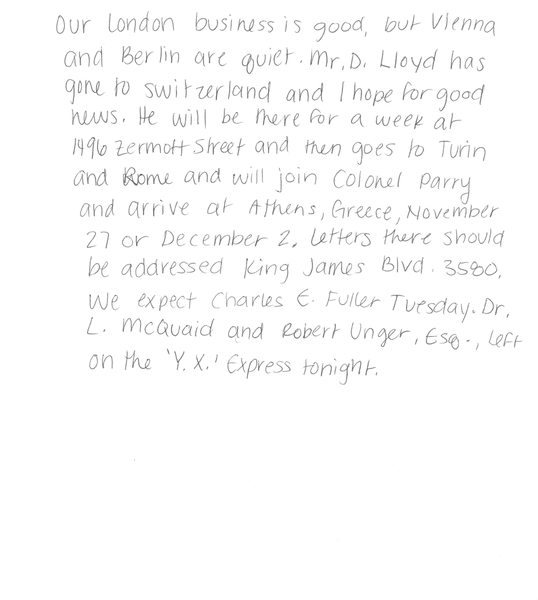 Our London business is good, but Vienna
and Berlin are quiet. Mr. D. Lloyd has
gone to Switzerland and I hope for good
news. He will be there for a week at
1496 Zermott Street and then goes to Turin
and Rome and will join Colonel Parry
and arrive at Athens, Greece, November
27 or December 2. Letters there should
be addressed King James Blvd. 3580.
We expect Charles E. Fuller Tuesday. Dr.
L. McQuaid and Robert Unger, Esq., left
on the 'Y. X.' Express tonight.